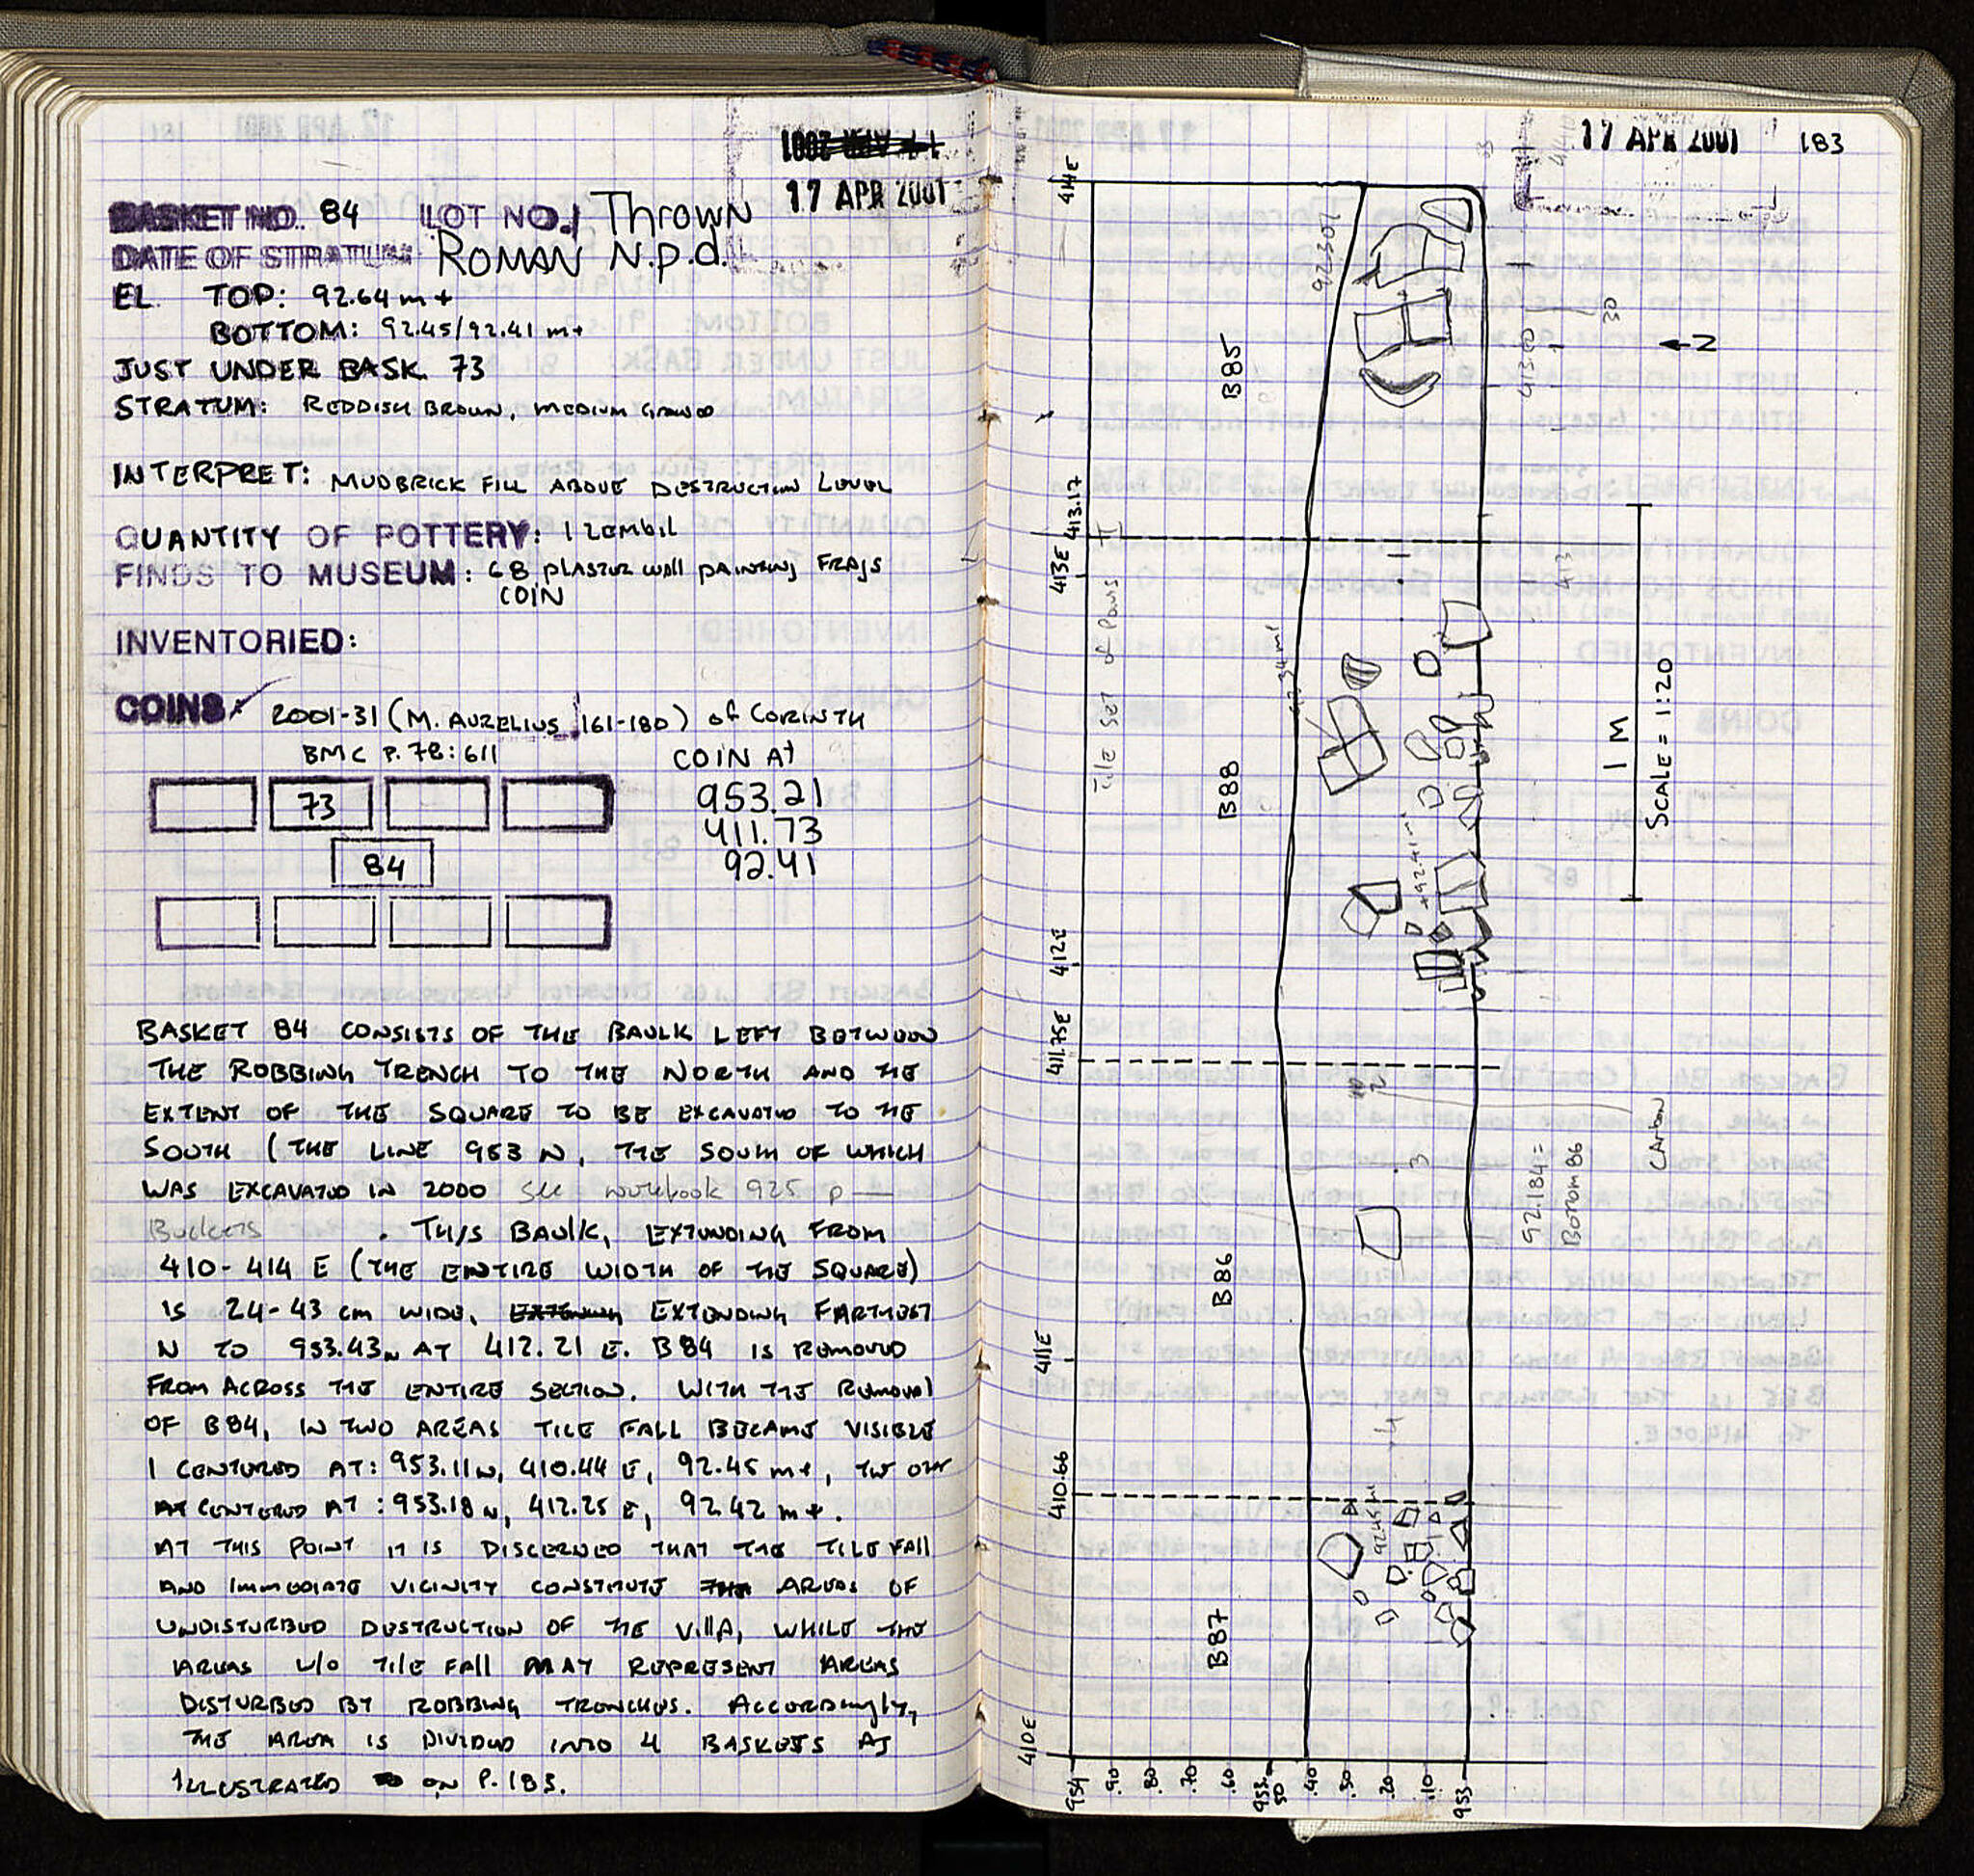 17 APR 2001
17 APR 2001
BASKET NO. 84 LOT NO. Thrown
DATE OF STRATUM: ROMAN N.p.d.
EL. TOP: 92.64 m+
BOTTOM: 92.45/92.41 m+
JUST UNDER BASK. 73
STRATUM: REDDISH BROWN, MEDIUM GRAINED
INTERPRET: MUDBRICK FILL ABOVE DESTRUCTION LEVEL
QUANTITY OF POTTERY: 1 ZEMBIL
FINDS TO MUSEUM: 68 PLASTER WALL PAINTING FRAGS
COIN
INVENTORIED:
COINS: 2001-31 (M. AURELIUS 161-180) of CORINTH
BMC P. 78:611
COIN At
953.21
411.73
92.41
73
84
BASKET 84 CONSISTS OF THE BAULK LEFT BETWEEN
THE ROBBING TRENCH TO THE NORTH AND THE
EXTENT OF THE SQUARE TO BE EXCAVATED TO THE
SOUTH (THE LINE 953 N, THE SOUTH OF WHICH
WAS EXCAVATED IN 2000 see notebook 925 p —
Baskets . THIS BAULK, EXTENDING FROM
410-414 E (THE ENTIRE WIDTH OF THE SQUARE)
IS 24-43 cm WIDE, EXTENDING EXTENDING FARTHEST
N TO 953.43 N AT 412.21 E. B84 IS REMOVED
FROM ACROSS THE ENTIRE SECTION. WITH THE REMOVAL
OF B84, IN TWO AREAS TILE FALL BECAME VISIBLE
1 CENTERED AT: 953.11 N, 410.44 E, 92.45 m+, THE OTHER
AT CENTERED AT: 953.18 N, 412.25 E, 92.42 m+.
AT THIS POINT IT IS DISCERNED THAT THE TILE FALL
AND IMMEDIATE VICINITY CONSTITUTE THE AREAS OF
UNDISTURBED DESTRUCTION OF THE VILLA, WHILE THE
AREAS W/O TILE FALL MAY REPRESENT AREAS
DISTURBED BY ROBBING TRENCHES. ACCORDINGLY,
THE AREA IS DIVIDED INTO 4 BASKETS AS
ILLUSTRATED ON P. 183.
17 APR 2001 183
414E
92.30
B85
30
N
413.17
413E
Tile Set of Pavis
92.34 m+
B88
92.41 m+
1 M
SCALE = 1:20
412E
411.75E
2
3
CARBON
92.184 =
BOTTOM 86
B86
411E
4
410.66
92.45 m+
B87
410E
954
.90
.80
.70
.60
953.50
.40
.30
.20
.10
953